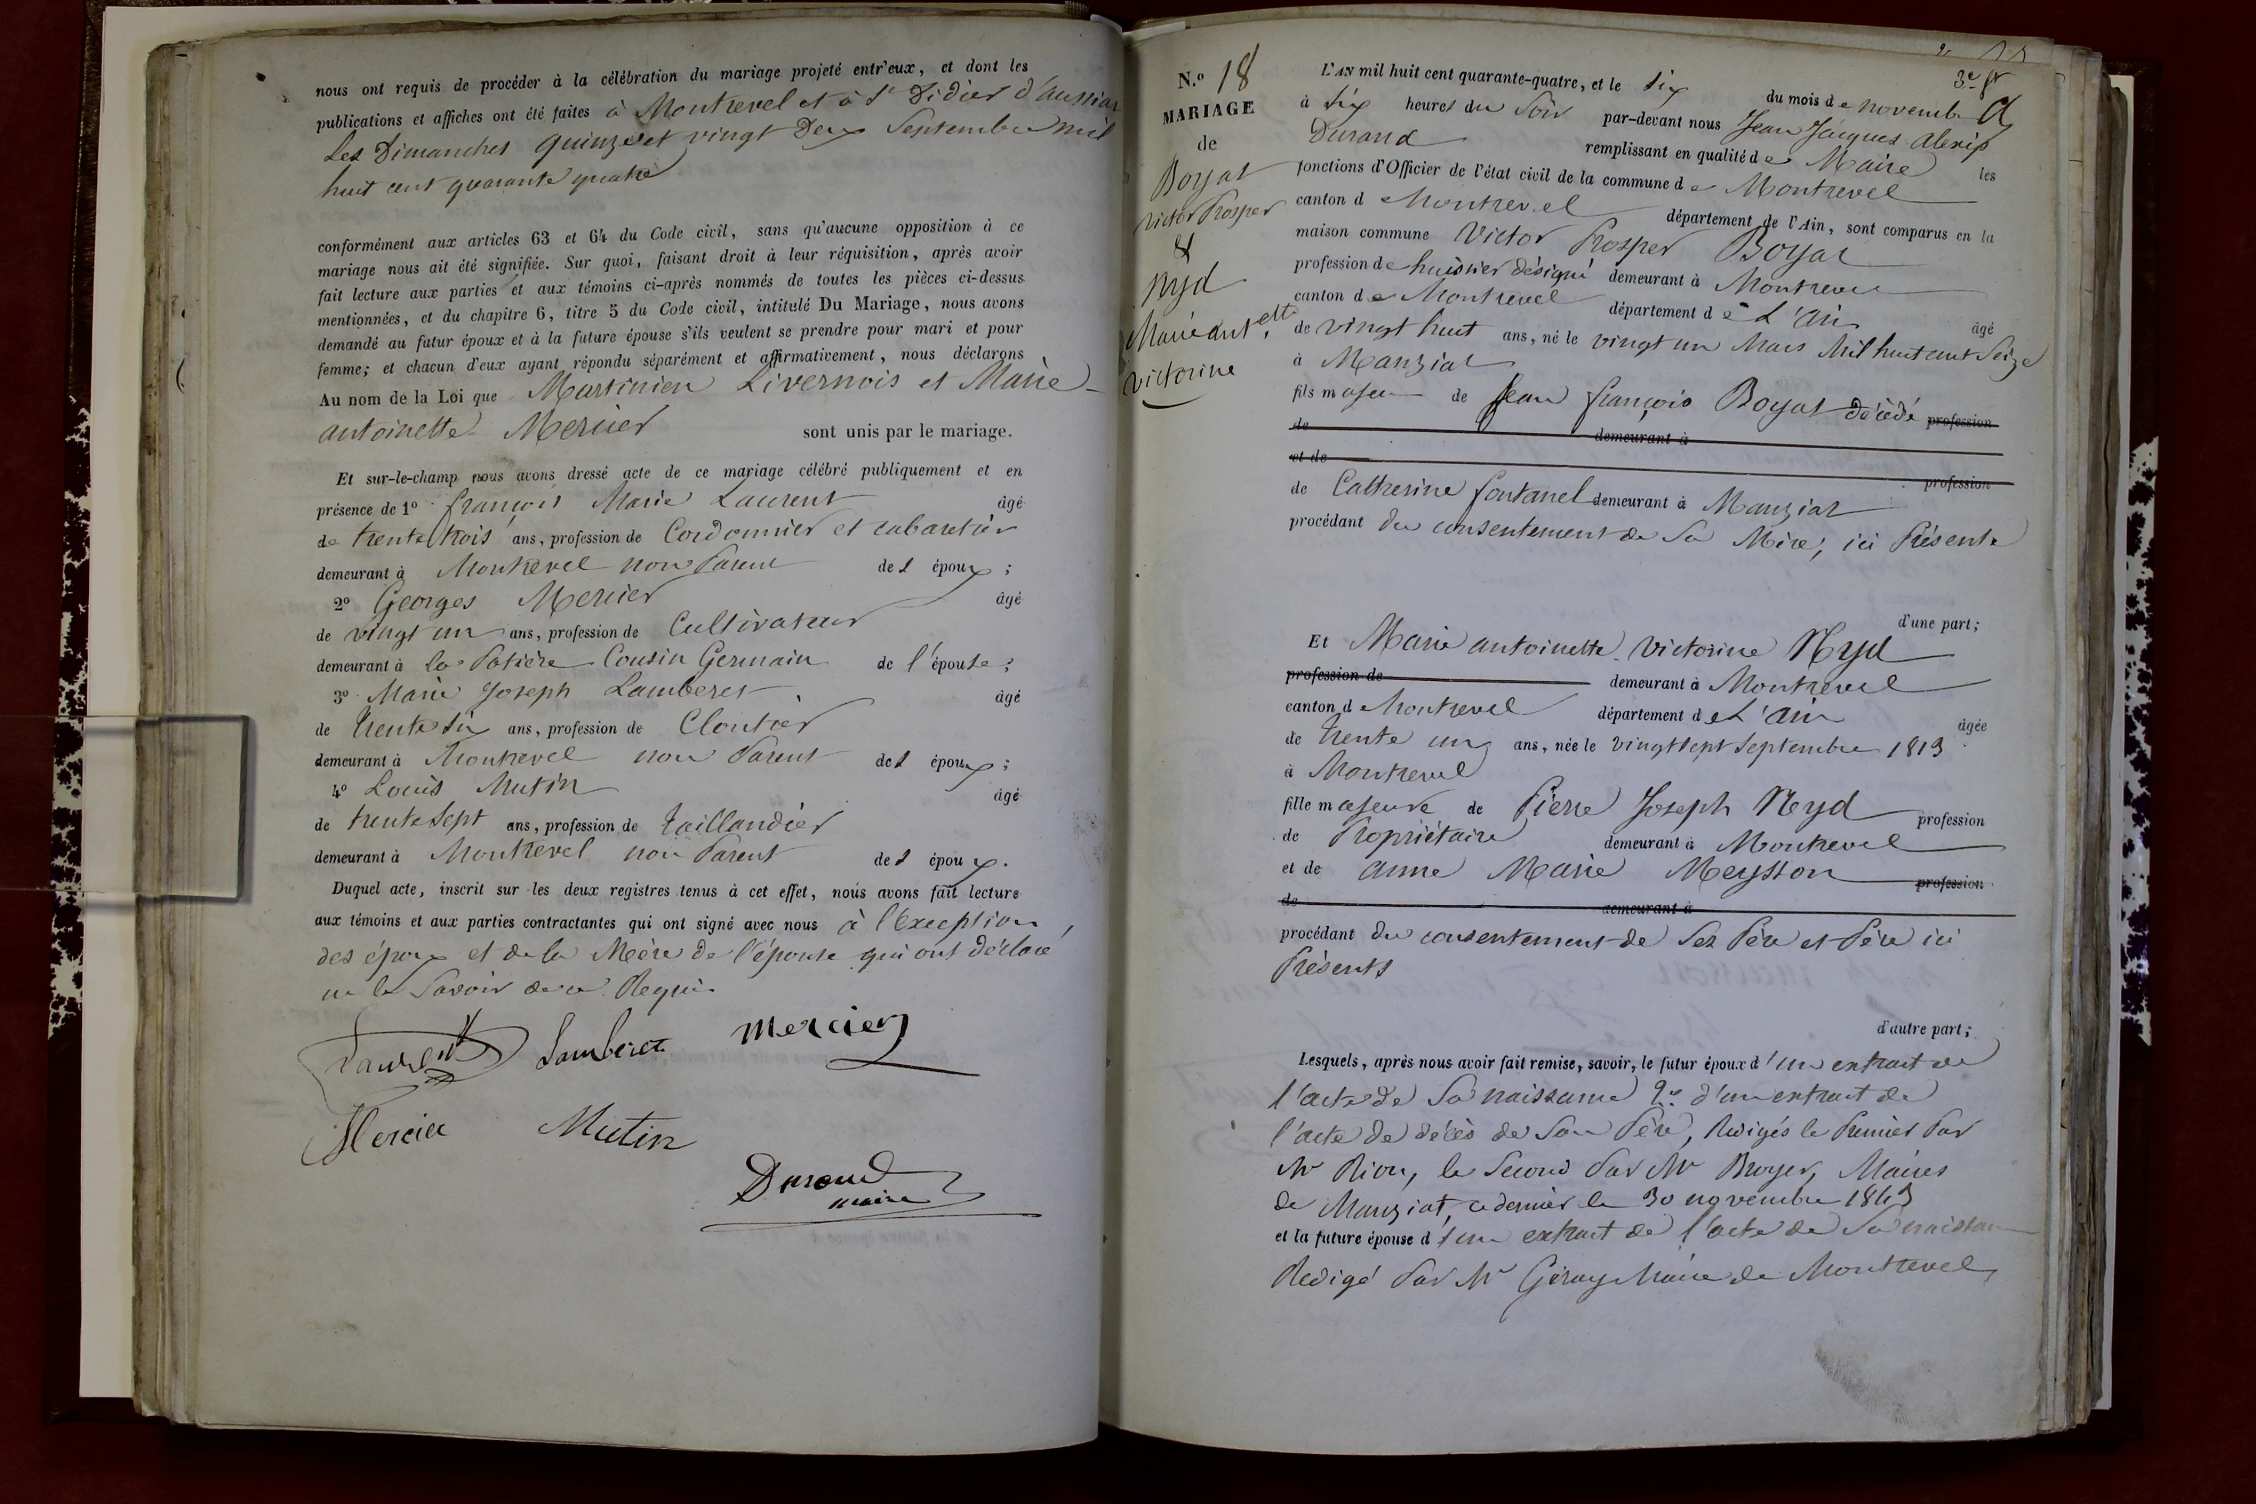 nous ont requis de procéder à la célébration du mariage projeté entr'eux, et dont les
publications et affiches ont été faites à Montrevel et à St Didier d'aussiat
Les Dimanches quinze et vingt Deux Septembre mil
huit cent quarante quatre
conformément aux articles 63 et 64 du Code civil, sans qu'aucune opposition à ce
mariage nous ait été signifiée. Sur quoi, faisant droit à leur réquisition, après avoir
fait lecture aux parties et aux témoins ci-après nommés de toutes les pièces ci-dessus
mentionnées, et du chapitre 6, titre 5 du Code civil, intitulé Du Mariage, nous avons
demandé au futur époux et à la future épouse s'ils veulent se prendre pour mari et pour
femme; et chacun d'eux ayant répondu séparément et affirmativement, nous déclarons
Au nom de la Loi que Martinien Livernois et Marie
antoinette Mercier sont unis par le mariage.
Et sur-le-champ nous avons dressé acte de ce mariage célébré publiquement et en
présence de 1º françois Marie Laurent âgé
de trente trois ans, profession de Cordonnier et cabaretier
demeurant à Montrevel non Parent de l époux;
2º Georges Mercier âgé
de vingt un ans, profession de Cultivateur
demeurant à la Cousin Germain de l'épouse;
3º Marie Joseph Lamberet âgé
de trente six ans, profession de Cloutier
demeurant à Montrevel non Parent de l époux;
4º Louis Mutin âgé
de trente Sept ans, profession de Taillandier
demeurant à Montrevel non Parent de l époux.
Duquel acte, inscrit sur les deux registres tenus à cet effet, nous avons fait lecture
aux témoins et aux parties contractantes qui ont signé avec nous à l'Exception
des époux et de la Mère de l'épouse qui ont déclaré
ne le Savoir de ce Requis
Laurent Lamberet Mercier
Mercier Mutin
Durand
maire
N.º 18
MARIAGE
de
Boyat
Victor Prosper
&
Nyd
Marie antette
victorine
3e
L'AN mil huit cent quarante-quatre, et le six du mois de novembre
à six heures du Soir par-devant nous Jean Jacques alexis
Durand remplissant en qualité de Maire les
fonctions d'Officier de l'état civil de la commune de Montrevel
canton d Montrevel département de l'Ain, sont comparus en la
maison commune Victor Prosper Boyat
profession de huissier désigné demeurant à Montrevel
canton de Montrevel département de L'ain âgé
de vingt huit ans, né le vingt un Mars Mil huit cent Seize
à Manziat
fils majeur de Jean françois Boyat décédé profession
de demeurant à
et de profession
de Catherine fontanel demeurant à Manziat
procédant du consentement de Sa Mère, ici Présente
d'une part;
Et Marie antoinette Victorine Nyd
profession de demeurant à Montrevel
canton d Montrevel département de L'ain âgée
de trente un ans, née le vingt sept Septembre 1813
à Montrevel
fille majeure de Pierre Joseph Nyd profession
de Propriétaire demeurant à Montrevel
et de anne Marie Meysson profession
de demeurant à
procédant du consentement de Ses Père et Père ici
Présents
d'autre part;
Lesquels, après nous avoir fait remise, savoir, le futur époux d'un extrait de
l'acte de Sa naissance 2º d'un extrait de
l'acte de décès de Son Père, Redigés le Premier Par
Mr Rion, le Second Par Mr Broyer, Maires
de Manziat, ce dernier le 30 novembre 1843
et la future épouse d'un extrait de l'acte de Sa naissance
Redigé Par Mr Maire de Montrevel